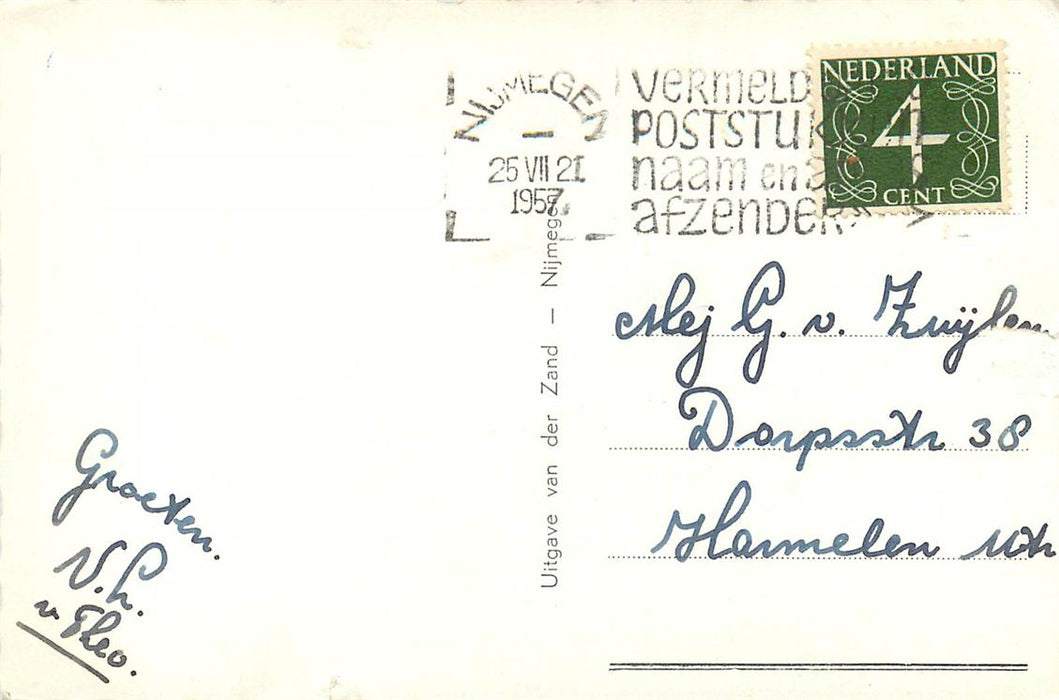 NIJMEGEN
25 VII 21
1957
VERMELD
POSTSTUK
naam en a
afzender
NEDERLAND
4
CENT
Uitgave van der Zand — Nijmegen
Mej G. v. Zuijlen
Dorpsstr 38
Harmelen Utr
Groeten.
v Theo.